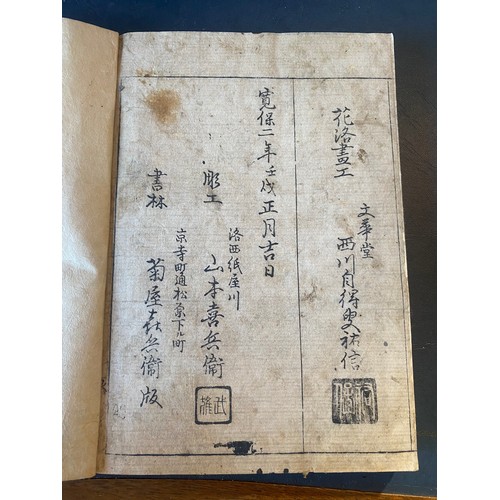 花洛畫工
文華堂
西川自得叟祐信
寛保二年壬戌正月吉日
彫工
洛西紙屋川
山本喜兵衞
書林
京寺町通松原下ル町
菊屋喜兵衞版